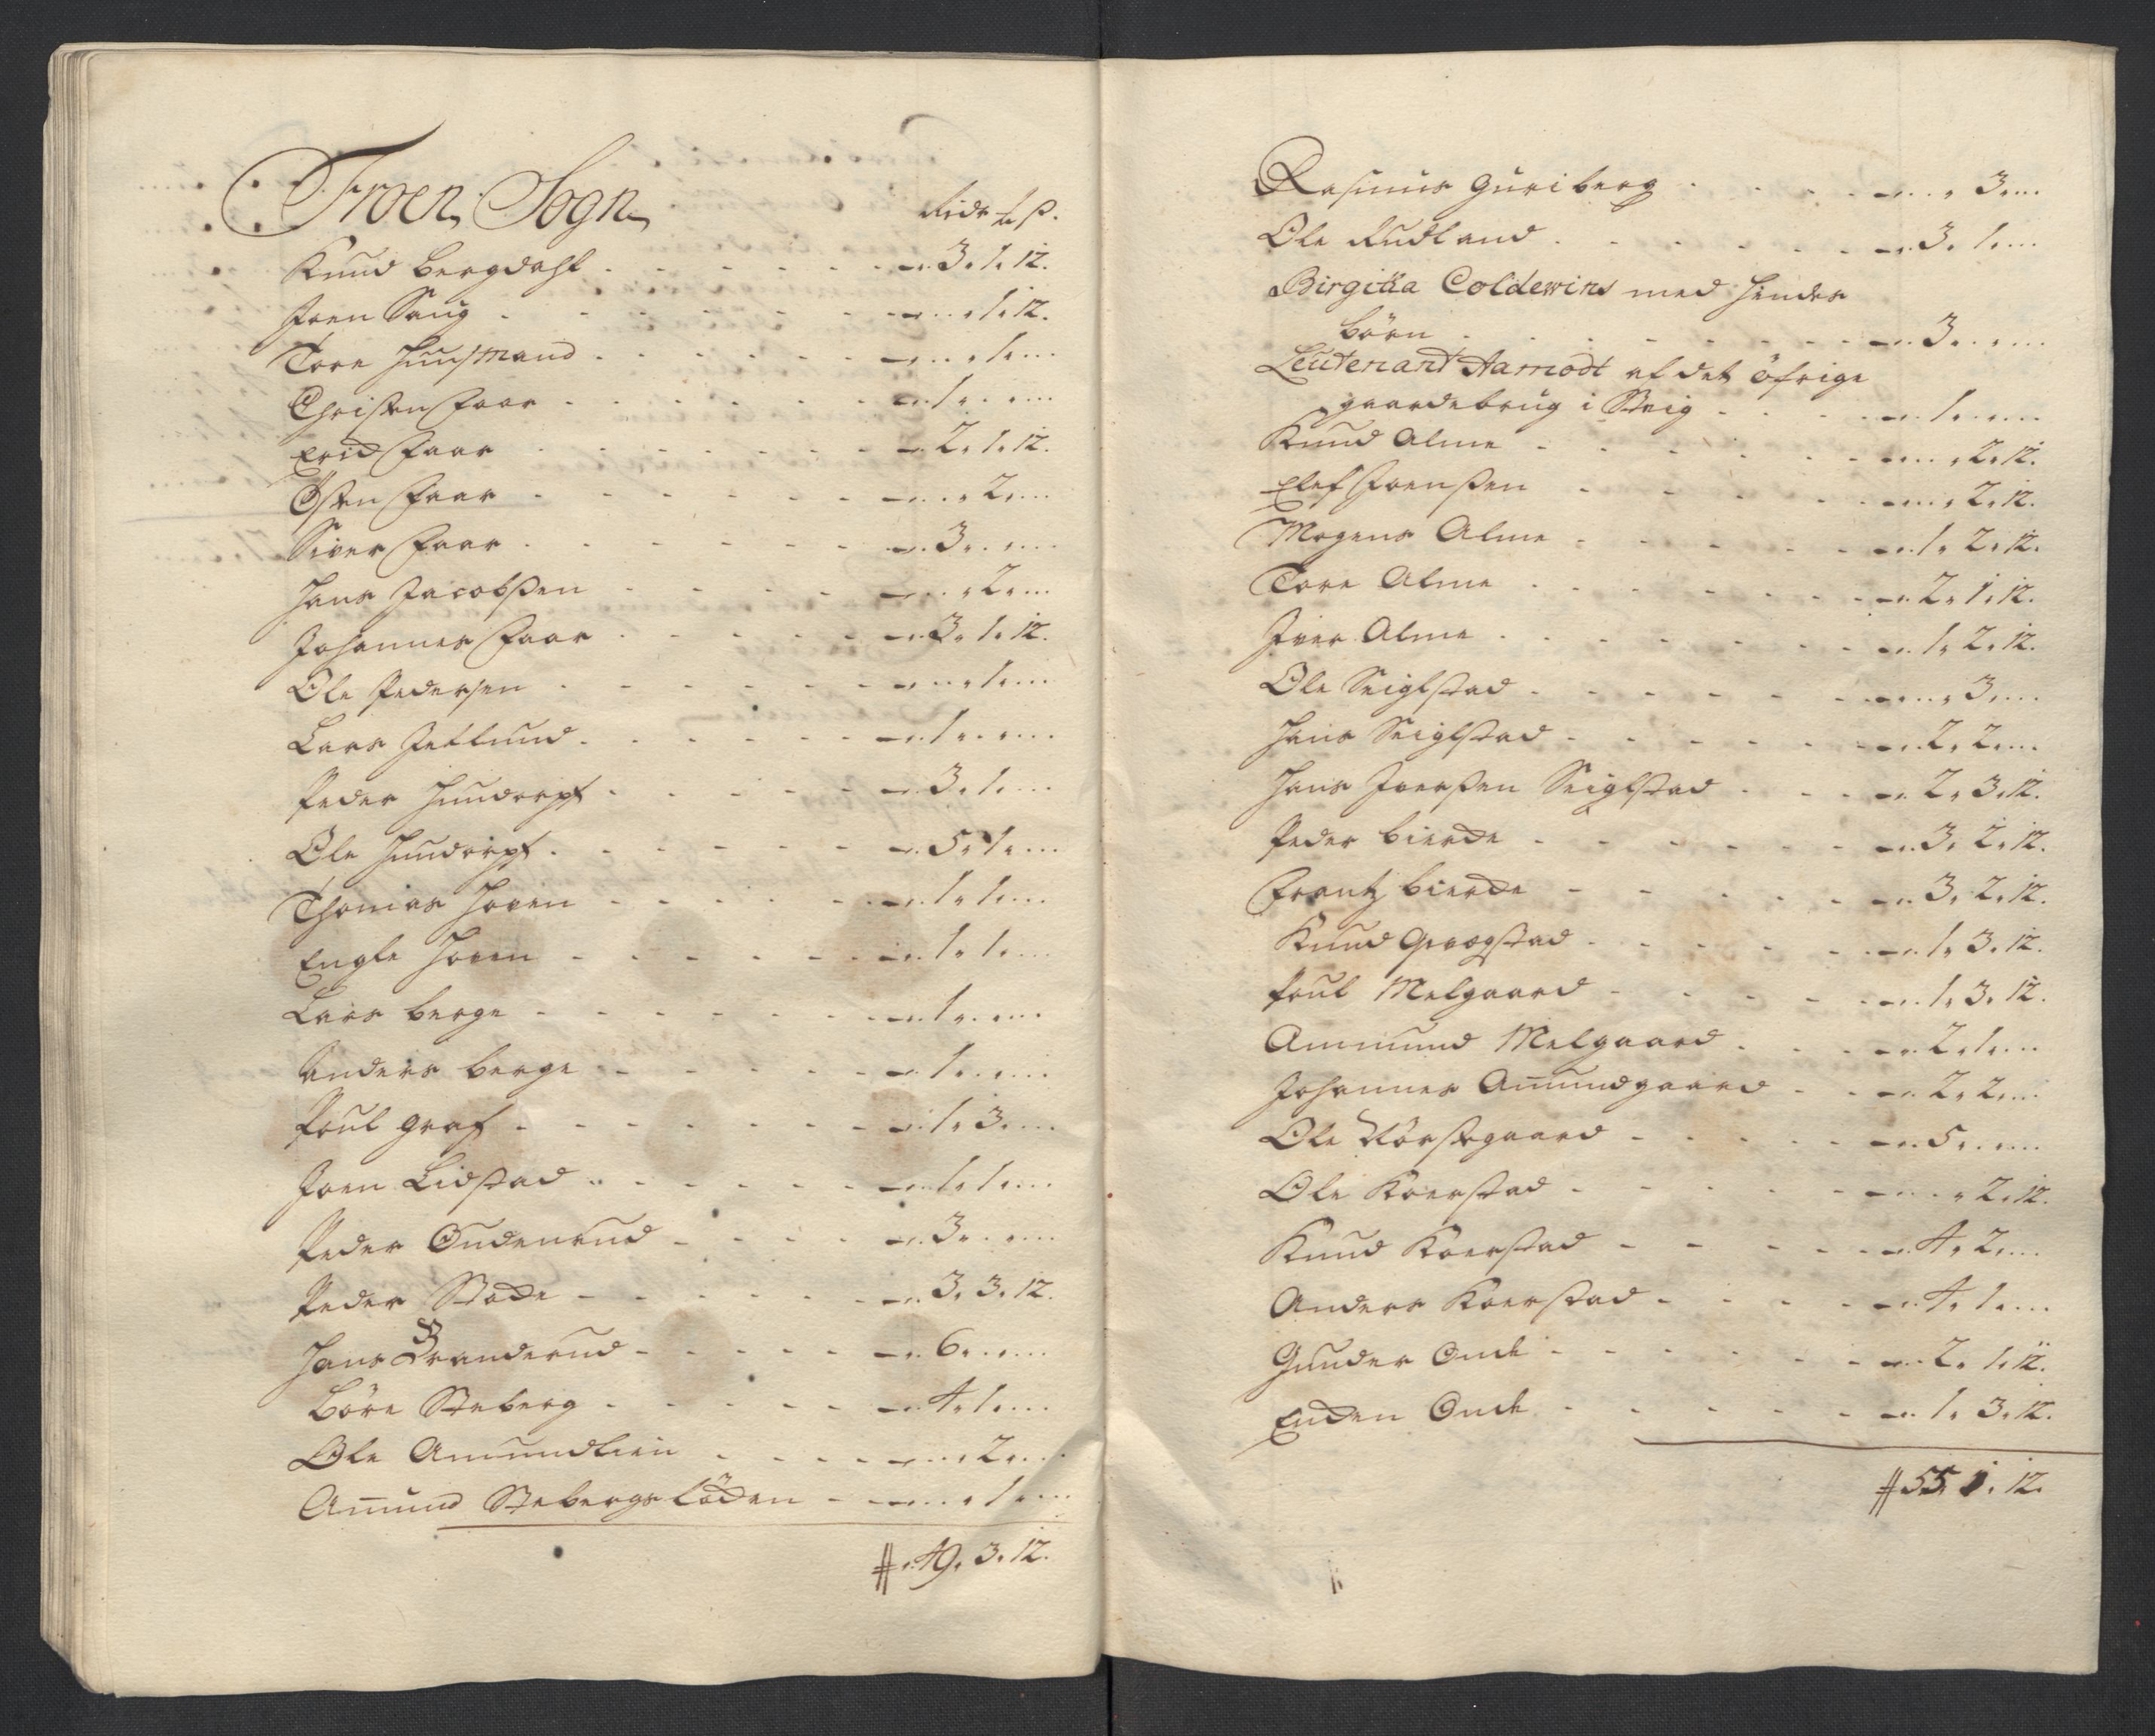 Froen Sogn
Ridr ꝉ β.
Knud Bergdahl . . . . . 3. 1. 12.
Joen Saug . . . . . . 1. 12.
Tore Huusmand . . . . . . 1. . .
Christen Faar . . . . . 1. . . .
Erich Faar . . . . . 2. 1. 12.
Østen Faar . . . . . . 2. . .
Siver Faar . . . . . 3. . . .
Hans Jacobßen . . . . . 2. . .
Johannes Faar . . . . . 3. 1. 12.
Ole Pedersen . . . . . . 1. . .
Lars Jetlund . . . . . 1. . . .
Peder Hundorpf . . . . . 3. 1. . .
Ole Hundorpf . . . . . 5. 1. . .
Thomas Hoven . . . . . 1. 1. . .
Engle Hoven . . . . . 1. 1. . .
Lars Berge . . . . . 1. . . .
Anders Berge . . . . . 1. . . .
Poul Graf . . . . . 1. 3. . .
Joen Lidstad . . . . . 1. 1. . .
Peder Oudenrud . . . . 3. . . .
Peder Stode . . . . . 3. 3. 12.
Hans Branderud . . . . . 6. . . .
Børe Steberg . . . . . 4. 1. . .
Ole Amundlien . . . . . 2. . .
Amund Stebergsløkken . . . . 1. . .
# 49. 3. 12.
Rasmus Guriberg . . . . . 3. . .
Ole Rudland . . . . . 3. 1. . .
Birgitta Coldewins med hendes
børn . . . . . 3. . . .
Leutenant Aamodt af det öfrige
gaardebrug i Steig . . . . 1. . . .
Knud Alme . . . . . . 2. 12.
Elef Joenßen . . . . . . 2. 12.
Mogens Alme . . . . . 1. 2. 12.
Tore Alme . . . . . 2. 1. 12.
Iver Alme . . . . . 1. 2. 12.
Ole Seiglstad . . . . . . 3. . .
Hans Seiglstad . . . . . 2. 2. . .
Hans Iverßen Seiglstad . . . 2. 3. 12.
Peder Bierke . . . . . 3. 2. 12.
Frantz Bierke . . . . . 3. 2. 12.
Knud Grogstad . . . . . 1. 3. 12.
Poul Melgaard . . . . . 1. 3. 12.
Ammund Melgaard . . . . 2. 1. . .
Johannes Amundgaard . . . 2. 2. . .
Ole Nörstegaard . . . . . 5. . . .
Ole Koerstad . . . . . . 2. 12.
Knud Koerstad . . . . . 4. 2. . .
Anders Koerstad . . . . 4. 1. . .
Gunder Onde . . . . . 2. 1. 12.
Enden Onde . . . . . 1. 3. 12.
# 55. 1. 12.